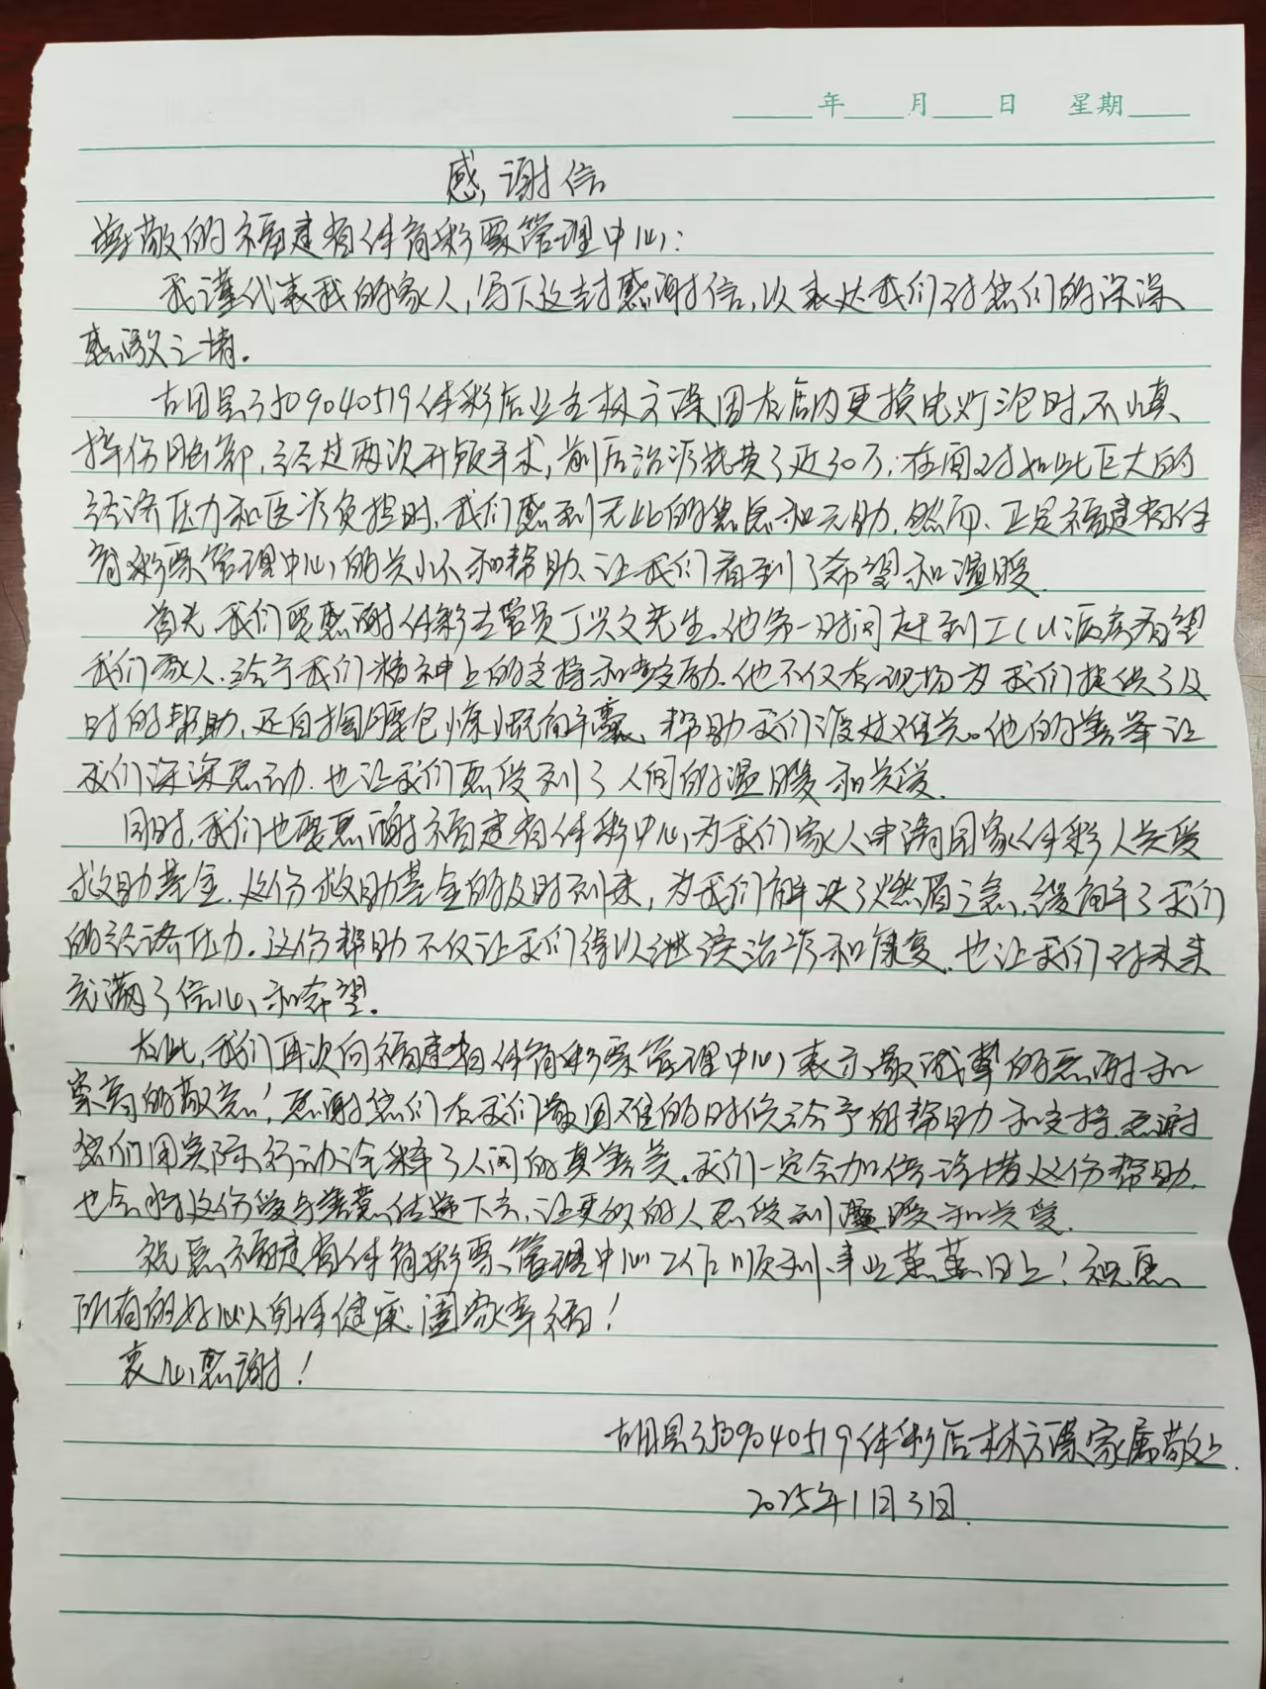 年 月 日 星期
感谢信
尊敬的福建省体育彩票管理中心:
我谨代表我的家人,写下这封感谢信,以表达我们对您们的深深
感激之情。
古田县3509040519体彩店业主林方谋因在店内更换电灯泡时,不慎
摔伤脑部,经过两次开颅手术,前后治疗就费了近30万;在面对如此巨大的
经济压力和医疗负担时,我们感到无比的焦急和无助,然而,正是福建省体
育彩票管理中心的关怀和帮助、让我们看到了希望和温暖.
首先,我们要感谢体彩专管员丁兴文先生。他第一时间赶到ICU病房看望
我们家人.给予我们精神上的支持和鼓励.他不仅在现场为我们提供了及
时的帮助,还自掏腰包慷慨解囊、帮助我们渡过难关。他的善举让
我们深深感动.也让我们感受到了人间的温暖和关爱.
同时,我们也要感谢福建省体彩中心为我们家人申请国家体彩人关爱
救助基金.这份救助基金的及时到来,为我们解决了燃眉之急,缓解了我们
的经济压力.这份帮助不仅让我们得以继续治疗和康复.也让我们对未来
充满了信心和希望。
在此,我们再次向福建省体育彩票管理中心表示最诚挚的感谢和
崇高的敬意!感谢您们在我们最困难的时候给予的帮助和支持.感谢
您们用实际行动诠释了人间的真善美。我们一定会加倍珍惜这份帮助.
也会将这份爱与善意传递下去,让更多的人感受到温暖和关爱.
祝愿福建省体育彩票管理中心工作顺利、事业蒸蒸日上!祝愿
所有的好心人身体健康.阖家幸福!
衷心感谢!
古田县3509040519体彩店林方谋家属敬上.
2025年1月3日.